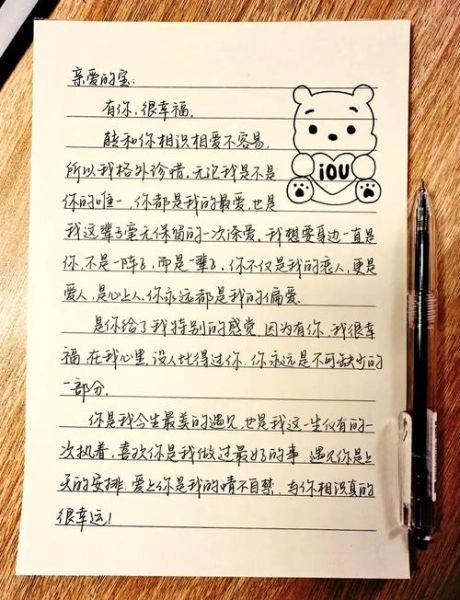 亲爱的宝:
有你,很幸福,
能和你相识相爱不容易,
所以我格外珍惜,无论我是不是
你的唯一,你都是我的最爱,也是
我这辈子毫无保留的一次深爱,我想要身边一直是
你,不是一阵子,而是一辈子,你不仅是我的恋人,更是
爱人,是心上人,你永远都是我的偏爱.
是你给了我特别的感觉,因为有你,我很幸
福,在我心里,没人比得过你,你永远是不可缺少的
一部分.
你是我今生最美的遇见,也是我这一生仅有的一
次执着,喜欢你是我做过最好的事,遇见你是上
天的安排,爱上你是我的情不自禁,与你相识真的
很幸运!
iOU